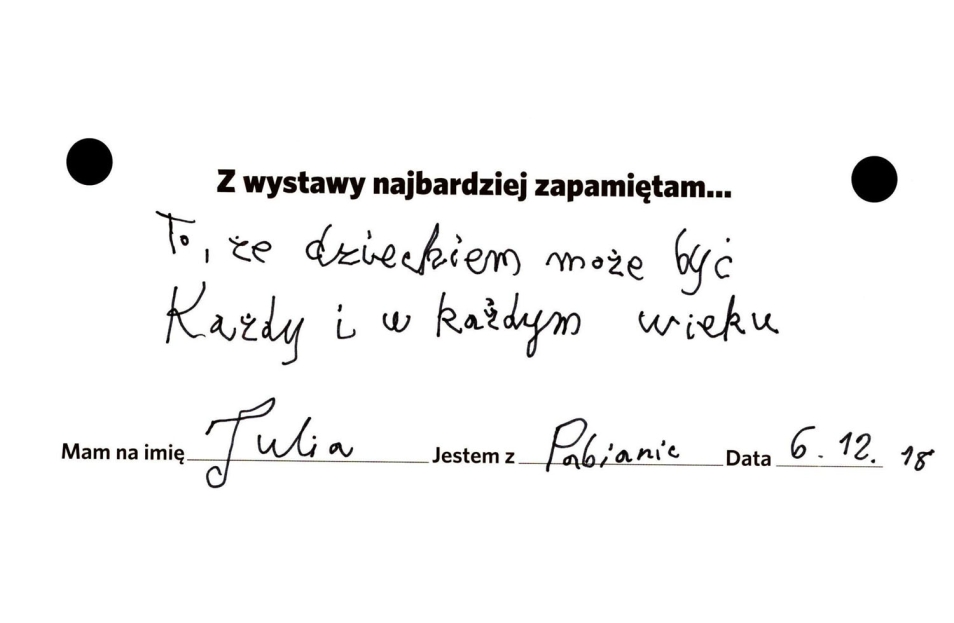 Z wystawy najbardziej zapamiętam...
To, że dzieckiem może być
Każdy i w każdym wieku
Mam na imię Julia Jestem z Pabianic Data 6.12.18